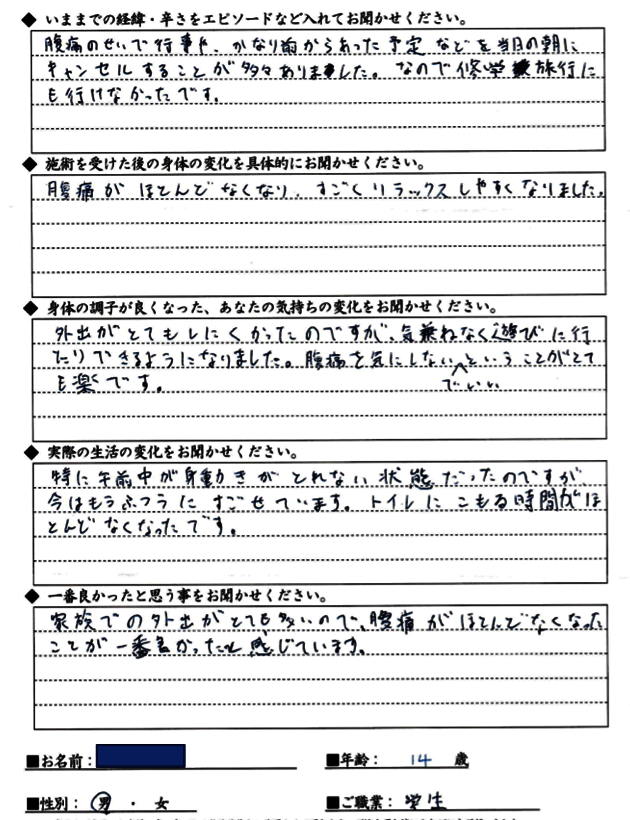 ◆ いままでの経緯・辛さをエピソードなど入れてお聞かせください。
腹痛のせいで行事や、かなり前からあった予定などを当日の朝に
キャンセルすることが多々ありました。なので修学旅行に
も行けなかったです。
◆ 施術を受けた後の身体の変化を具体的にお聞かせください。
腹痛がほとんどなくなり、すごくリラックスしやすくなりました。
◆ 身体の調子が良くなった、あなたの気持ちの変化をお聞かせください。
外出がとてもしにくかったのですが、気兼ねなく遊びに行
たりできるようになりました。腹痛を気にしないでいいということがとて
も楽です。
◆ 実際の生活の変化をお聞かせください。
特に午前中が身動きがとれない状態だったのですが
今はもうふつうにすごせています。トイレにこもる時間がほ
とんどなくなったです。
◆ 一番良かったと思う事をお聞かせください。
家族での外出がとても多いので、腹痛がほとんどなくなった
ことが一番良かったと感じています。
■お名前：
■年齢： 14 歳
■性別： 男 ・ 女
■ご職業： 学生